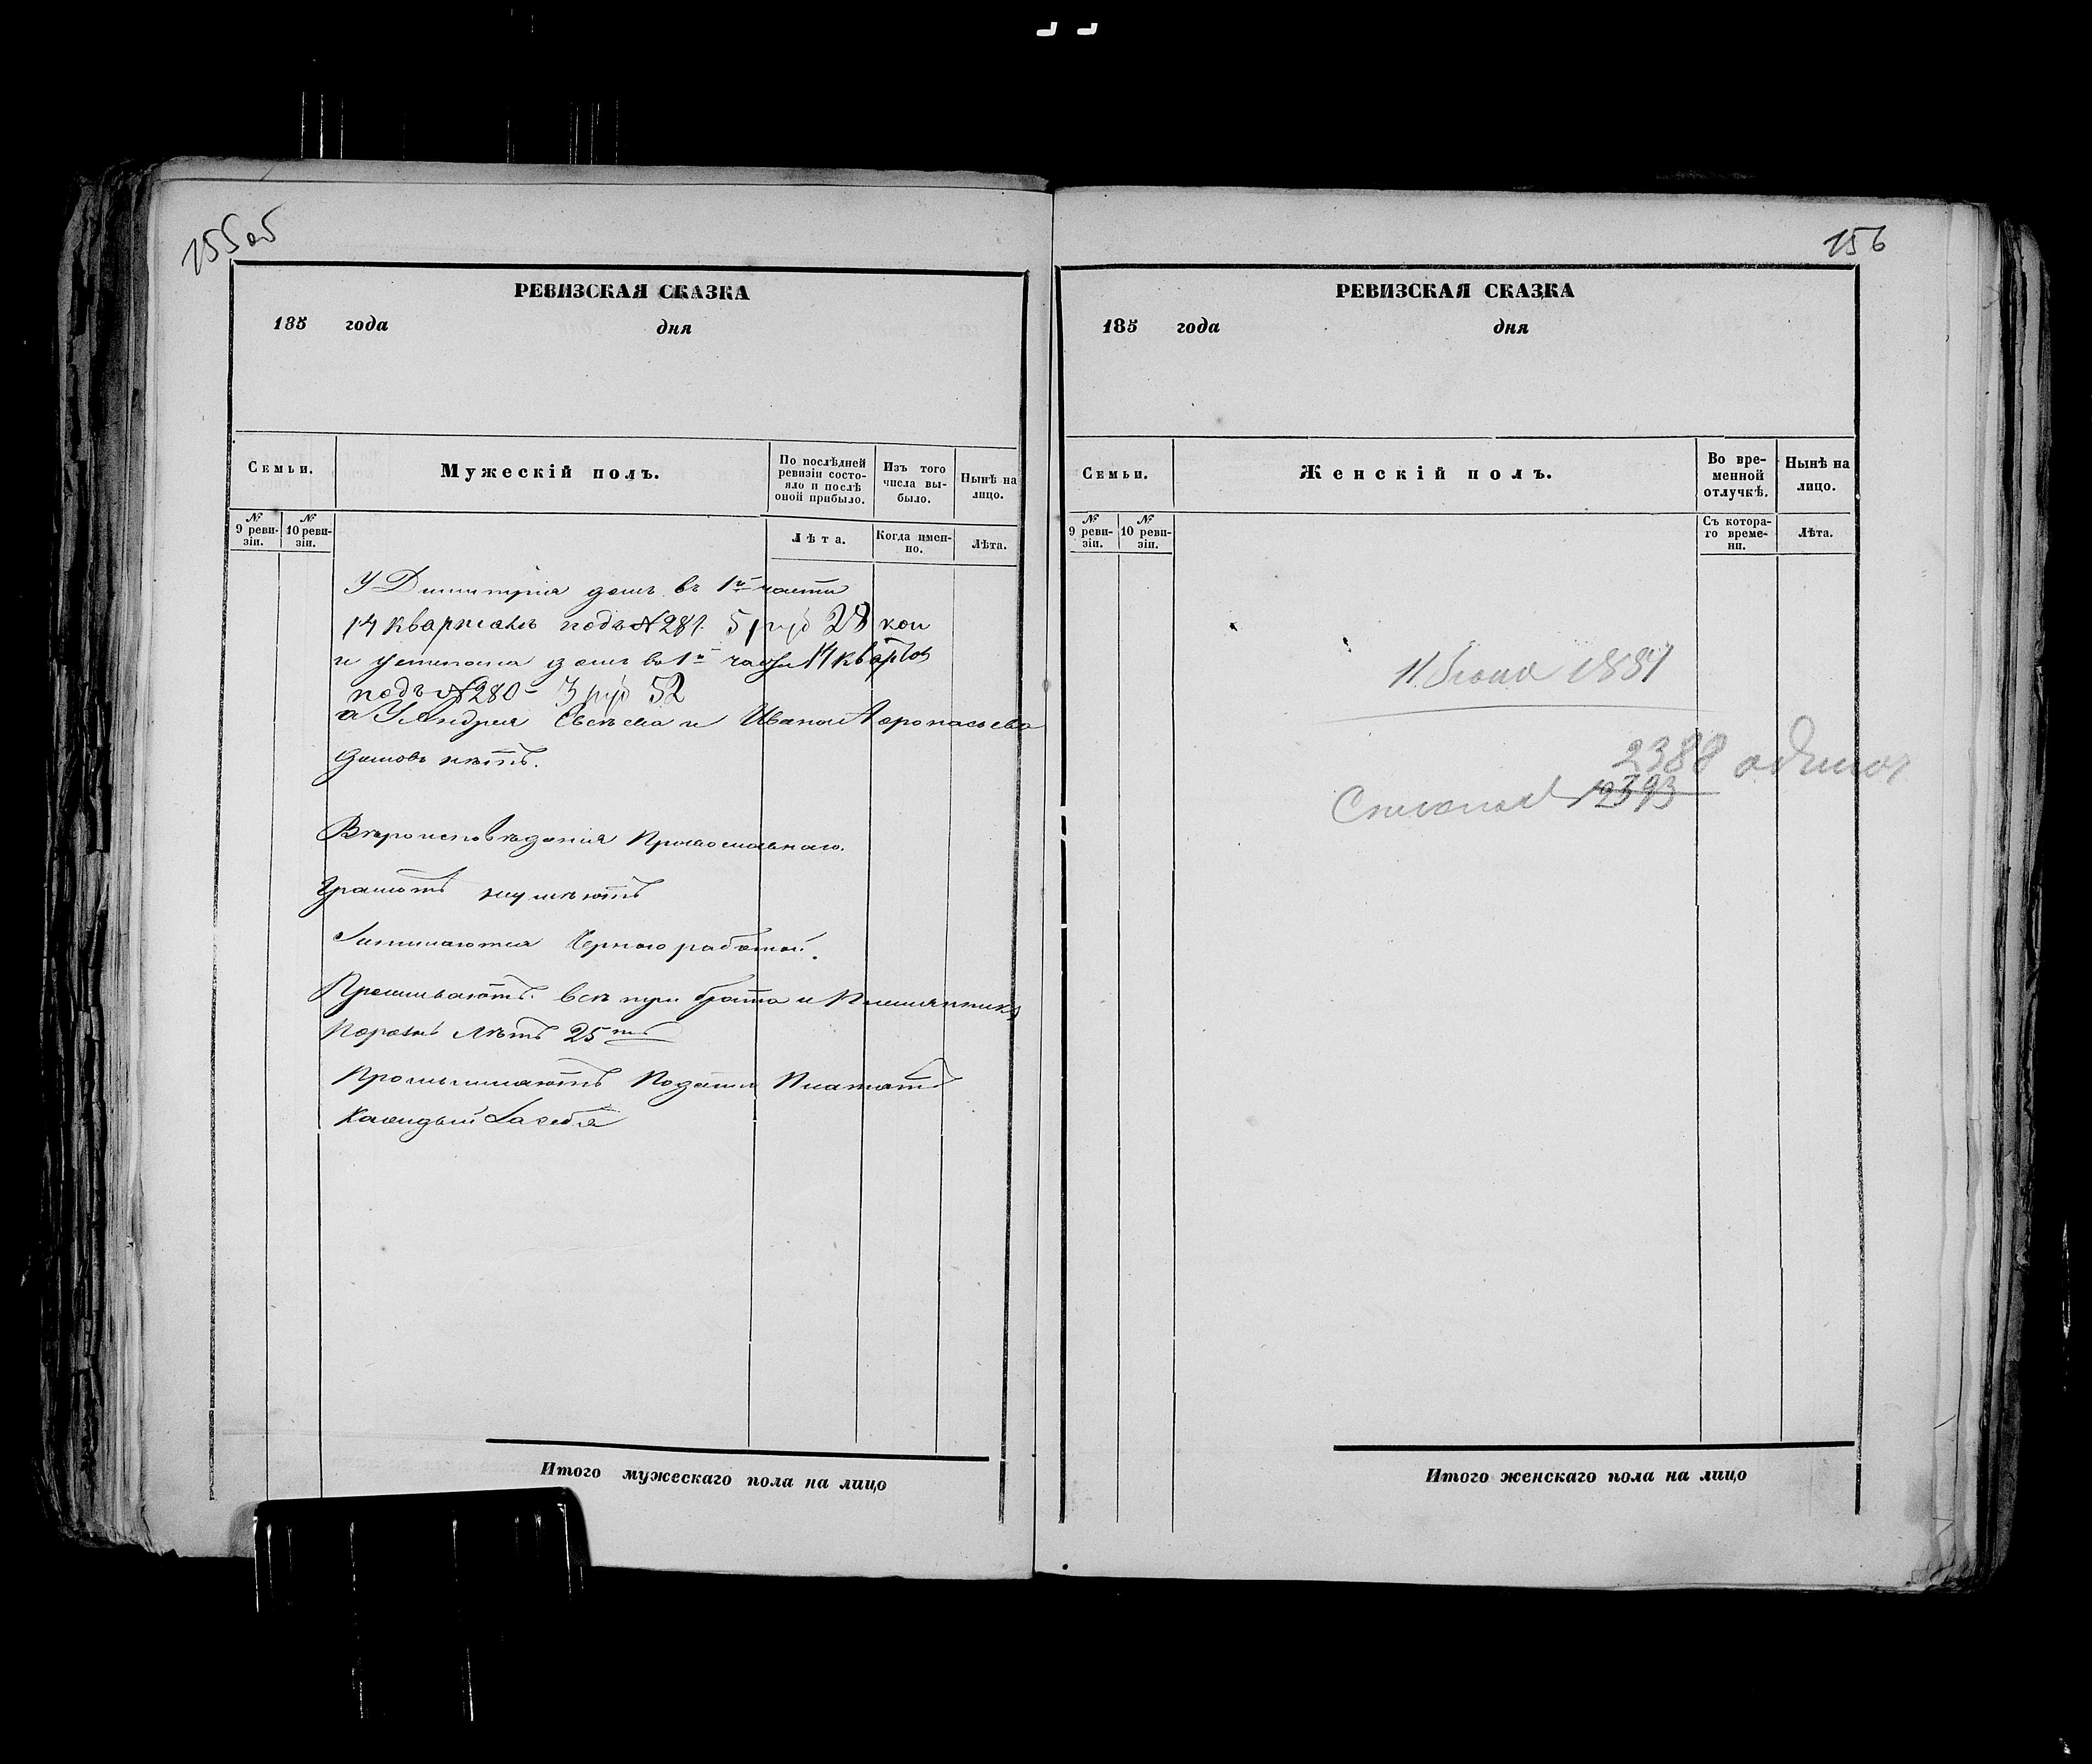 155об
РЕВИЗСКАЯ СКАЗКА
185 года дня
Семьи.
Мужескій полъ.
По послѣдней ревизіи состояло и послѣ оной прибыло.
Изъ того числа выбыло.
Нынѣ на лицо.
№ 9 ревизіи.
№ 10 ревизіи.
Лѣта.
Когда именно.
Лѣта.
У Димитрія домъ въ 1й части
14 кварталѣ подъ № 281. 5 руб 28 коп
и Устепана домъ въ 1й части 14 кварт
подъ № 280 - 3 руб 52
а У Андрея Евсѣева и Ивана
домовъ нѣтъ.
Вѣроисповѣданія Православнаго.
Грамотѣ неумѣютъ
Занимаются Черною работой.
Проживаютъ всѣ три брата и Племянникъ
Порознь лѣтъ 25ть
Промышляютъ Подати Платятъ
Каждый Засебя
Итого мужескаго пола на лицо
156
РЕВИЗСКАЯ СКАЗКА
185 года дня
Семьи.
Женскій полъ.
Во временной отлучкѣ.
Нынѣ на лицо.
№ 9 ревизіи.
№ 10 ревизіи.
Съ котораго времени.
Лѣта.
11 1881
2388
2393
Итого женскаго пола на лицо